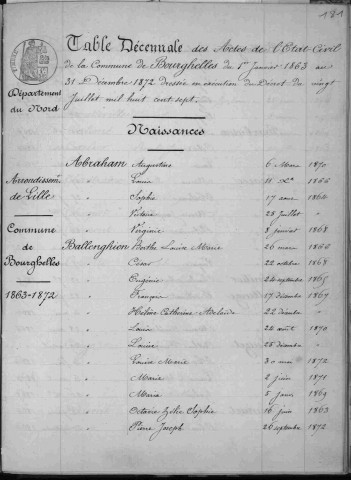 181
Table Décennale des Actes de l'Etat-Civil
de la Commune de Bourghelles du 1er Janvier 1863 au
31 Décembre 1872 dressée en exécution du Décret du vingt
Juillet mil huit cent sept.
Département
du Nord
Naissances
Arrondissemt
de Lille
Commune
de
Bourghelles
1863-1872
Abraham Augustine 6 Mars 1870
" Louis 11 Xbre 1866
" Sophie 17 août 1864
" Victoire 28 Juillet "
" Virginie 8 janvier 1868
Ballenghien Berthe Louise Marie 26 mars 1866
" César 22 octobre 1868
" Eugénie 24 septembre 1865
" François 17 décembre 1867
" Helène Catherine Adelaïde 22 décembre "
" Louis 28 août 1870
" Louise 25 décembre "
" Louise Marie 30 mai 1872
" Marie 2 juin 1871
" Maria 5 janvr 1869
" Octavie Sophie 16 juin 1863
" Pierre Joseph 26 septembre 1872